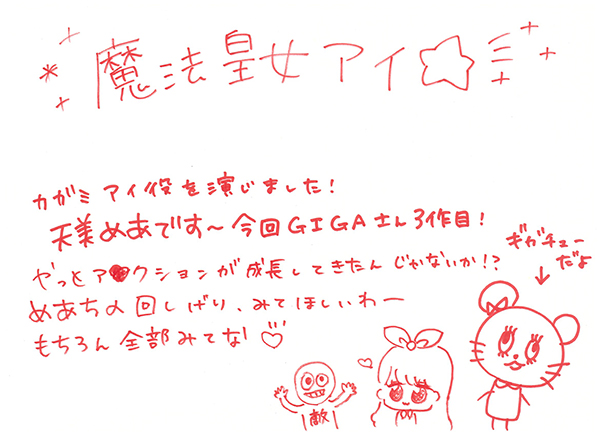 魔法皇女アイ☆ミ
カガミ アイ役を演じました!
天美めあです〜今回GIGAさん3作目!
やっとアクションが成長してきたんじゃないか!?
めあちの回しげり、みてほしいわー
もちろん全部みてな♡
ギガチュー
だよ
敵